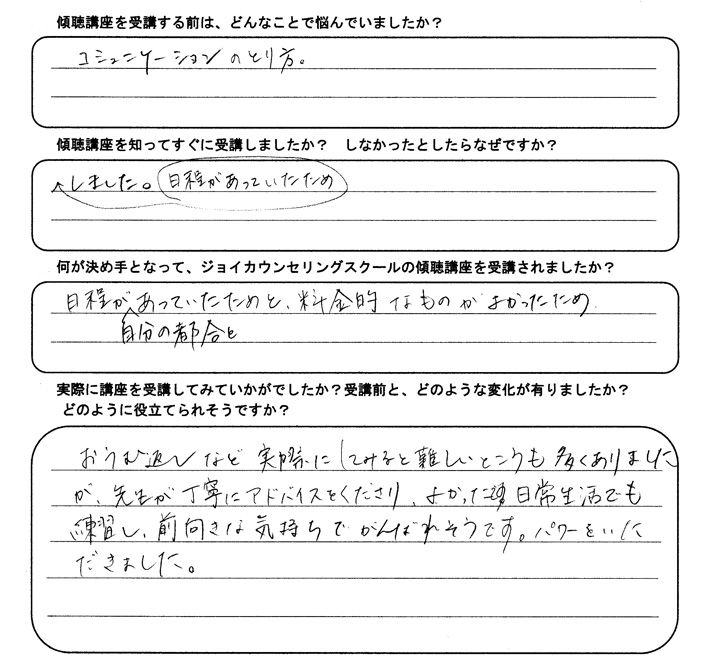 傾聴講座を受講する前は、どんなことで悩んでいましたか？
コミュニケーションのとり方。
傾聴講座を知ってすぐに受講しましたか？　しなかったとしたらなぜですか？
しました。日程があっていたため
何が決め手となって、ジョイカウンセリングスクールの傾聴講座を受講されましたか？
日程があっていたためと、料金的なものがよかったため
自分の都合と
実際に講座を受講してみていかがでしたか？受講前と、どのような変化が有りましたか？
どのように役立てられそうですか？
おうむ返しなど実際にしてみると難しいところも多くありました
が、先生が丁寧にアドバイスをくださり、よかった 日常生活でも
練習し、前向きな気持ちでがんばれそうです。パワーをいた
だきました。